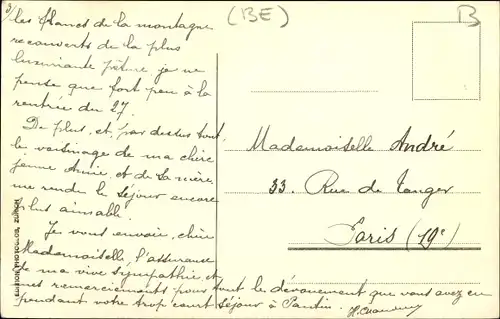 3/
(BE)
B
les flancs de la montagne
recouverts de la plus
luxuriante pâture, je ne
pense que fort peu à la
rentrée du 27.
De plus, et, par dessus tout,
le voisinage de ma chère
jeune Amie, et de sa mère
me rendu le séjour encore
plus aimable.
Je vous envoie, chère
Mademoiselle, l'assurance
de ma vive sympathie et
mes remerciements pour tout le dévouement que vous avez eu
pendant votre trop court séjour à Pantin.
Mademoiselle André
33, Rue de Tanger
Paris (19e)
EDITION PHOTOGLOB, ZÜRICH